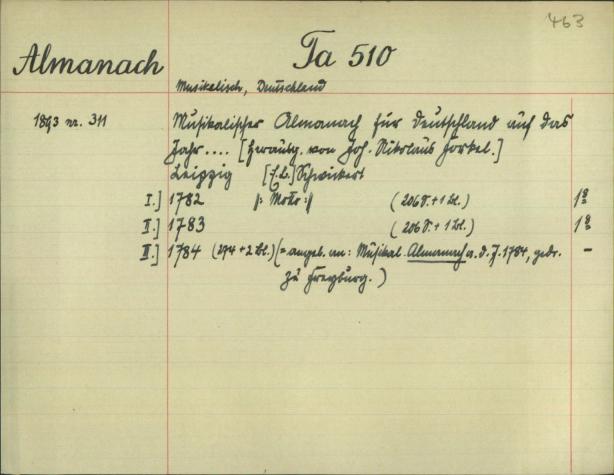 463
Almanach Ta 510
Musikalisch, Deutschland
1893 nr. 311 Musikalischer Almanach für Deutschland auf das
Jahr .... [Herausg. von Joh. Nikolaus Forkel.]
Leipzig [s.d.] Schwickert
I.] 1782 |: Motto :| (206 S. + 1 bl.) 1 8
II.] 1783 (206 S. + 1 bl.) 1 8
III.] 1784 (274 + 2 bl.) (= angeb. an: Musikal. Almanach a. d. J. 1784, gedr. –
zu Freyburg.)